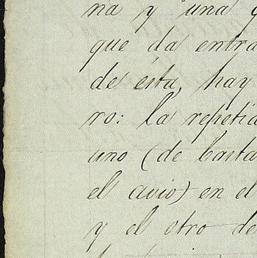 na y una
que da entra
de ésta, hay
ro: la repetic
uno (de Casta
el avio) en el
y el otro de